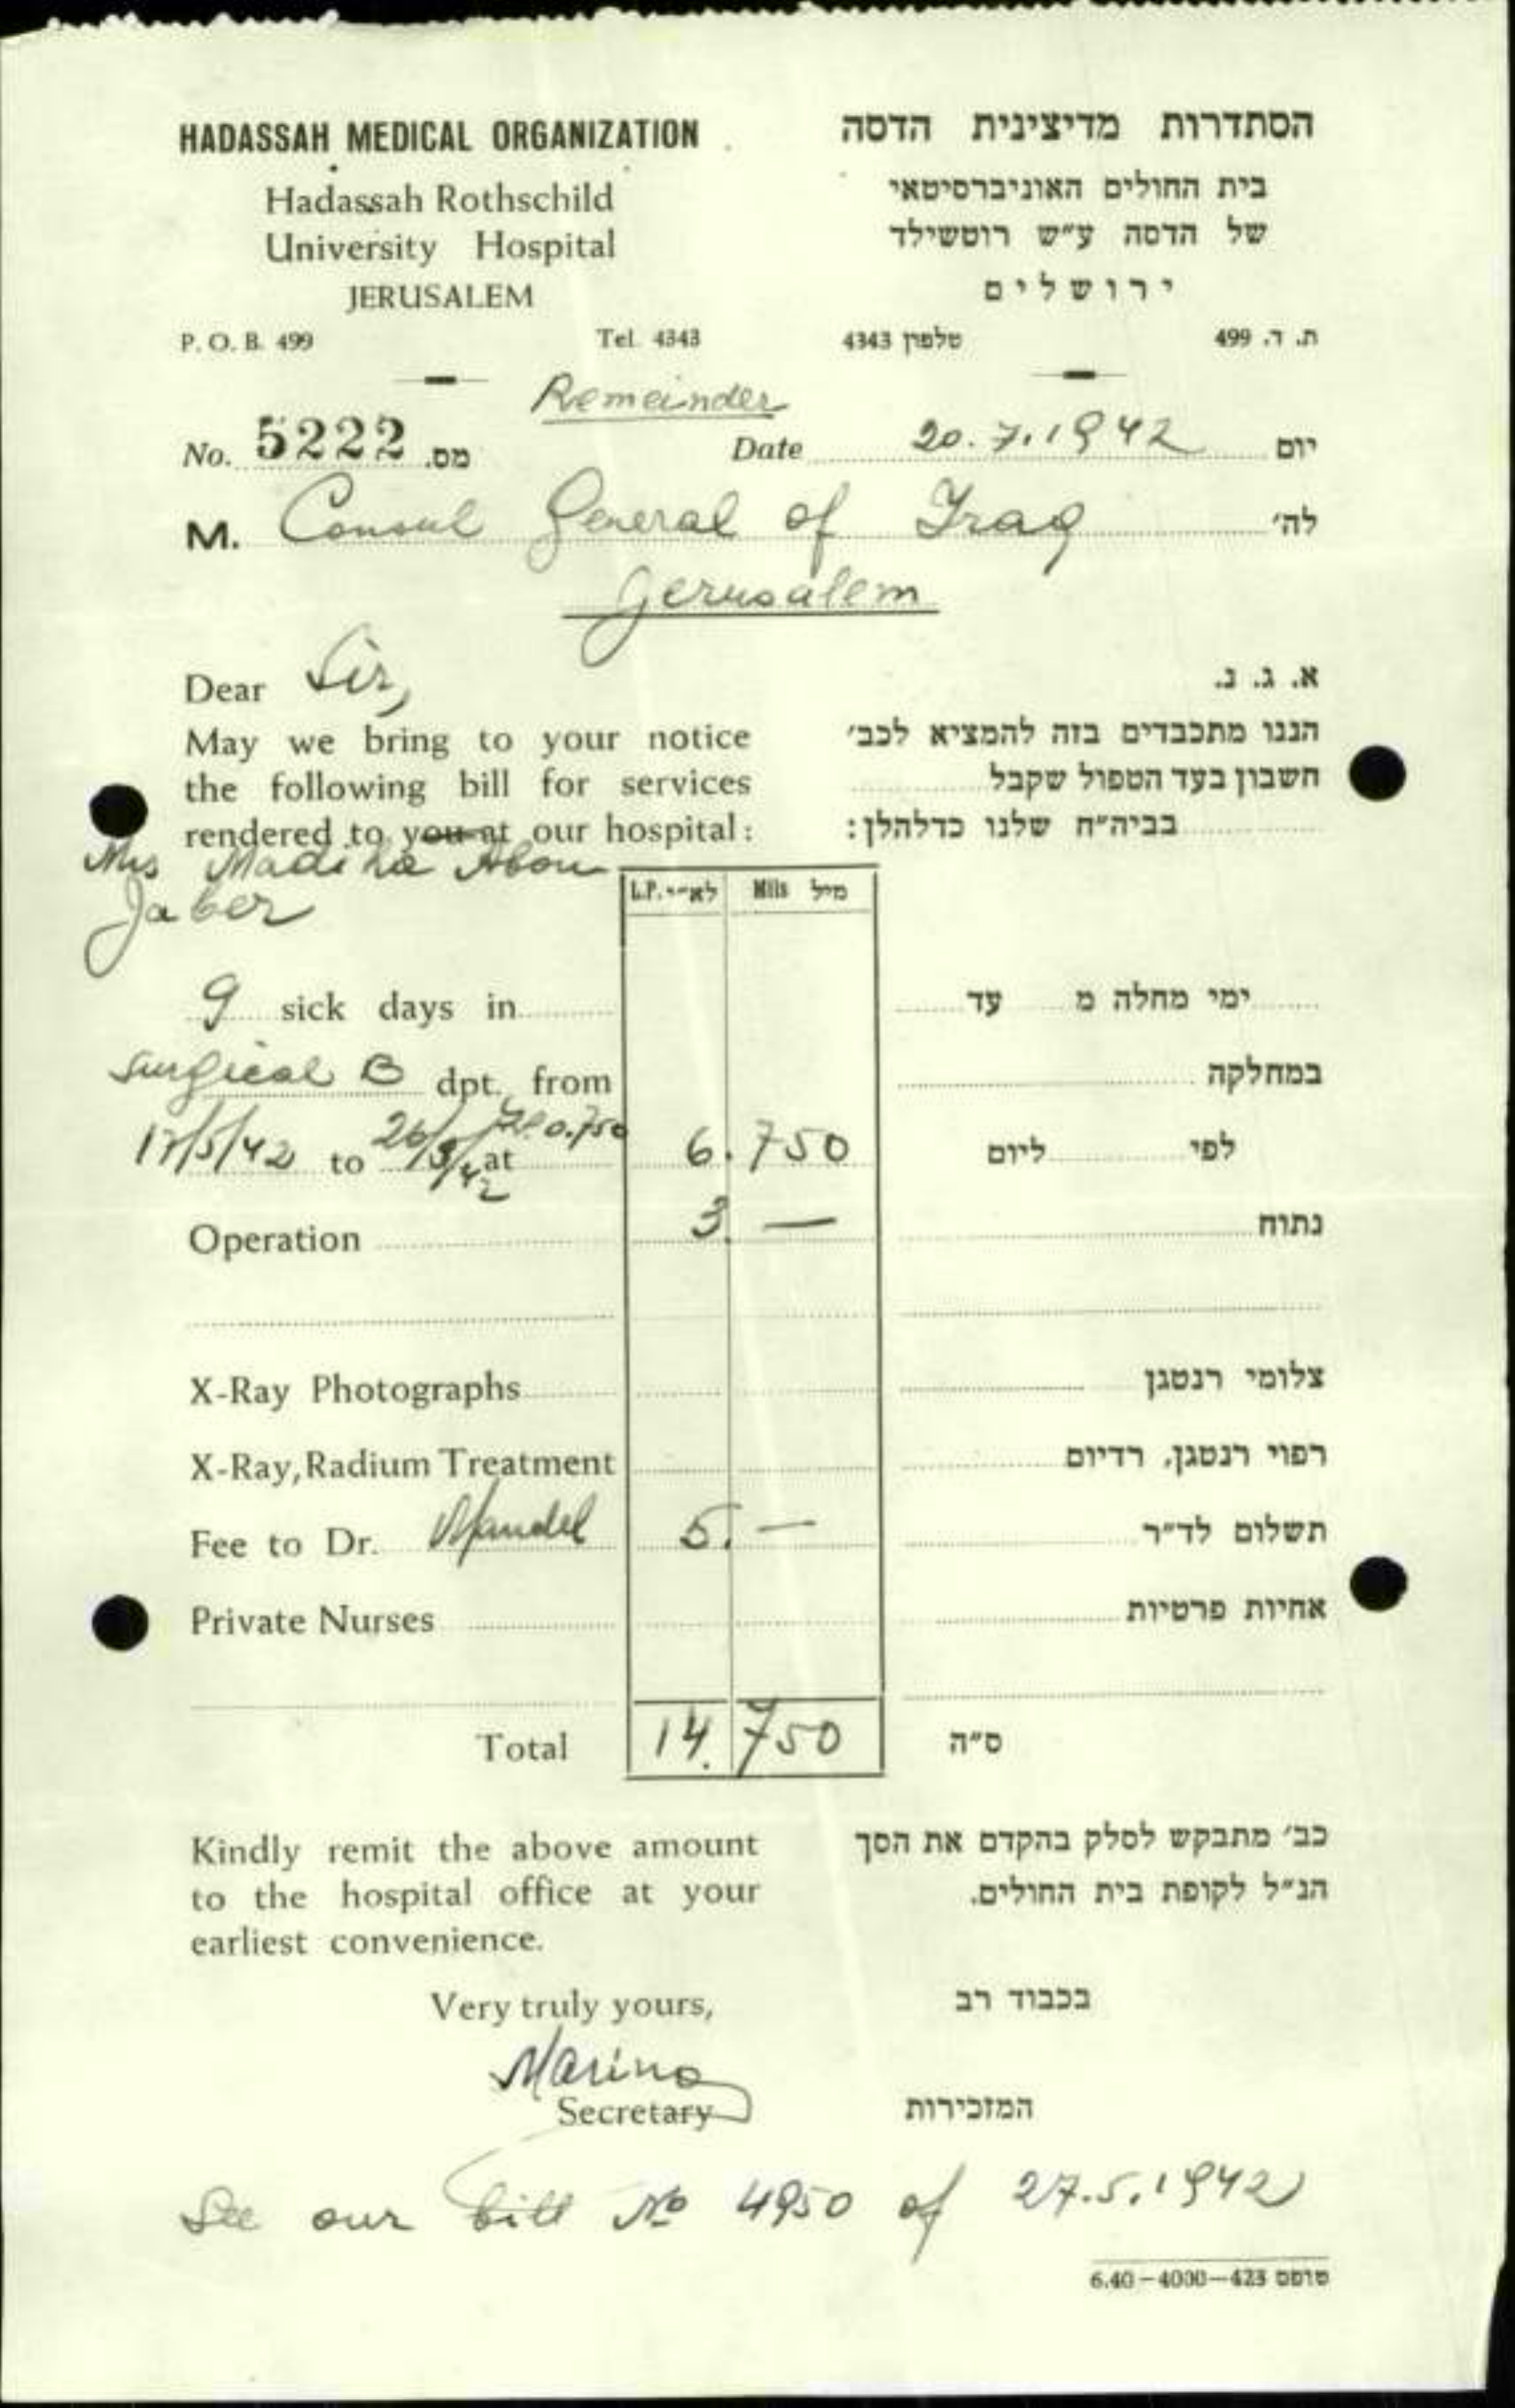 HADASSAH MEDICAL ORGANIZATION
Hadassah Rothschild
University Hospital
JERUSALEM
P. O. B. 499 Tel. 4343
הסתדרות מדיצינית הדסה
בית החולים האוניברסיטאי
של הדסה ע"ש רוטשילד
ירושלים
ת. ד. 499 טלפון 4343
Remeinder
No. 5222 מס. Date 20.7.1942 יום
M. Consul General of Iraq לה'
Jerusalem
Dear Sir,
May we bring to your notice
the following bill for services
rendered to you at our hospital:
א. ג. נ.
הננו מתכבדים בזה להמציא לכב'
חשבון בעד הטפול שקבל
בביה"ח שלנו כדלהלן:
Mrs Madiha Abou
Jaber
L.P. לא"י Mils מיל
9 sick days in ימי מחלה מ עד
Surgical B dpt. from במחלקה
17/5/42 to 26/5/42 at 0.750 6.750 לפי ליום
Operation 3. — נתוח
X-Ray Photographs צלומי רנטגן
X-Ray, Radium Treatment רפוי רנטגן, רדיום
Fee to Dr. Mandel 5. — תשלום לד"ר
Private Nurses אחיות פרטיות
Total 14.750 ס"ה
Kindly remit the above amount
to the hospital office at your
earliest convenience.
כב' מתבקש לסלק בהקדם את הסך
הנ"ל לקופת בית החולים.
Very truly yours, בכבוד רב
Marino
Secretary המזכירות
See our bill No 4950 of 27.5.1942
טופס 423—4000—6.40